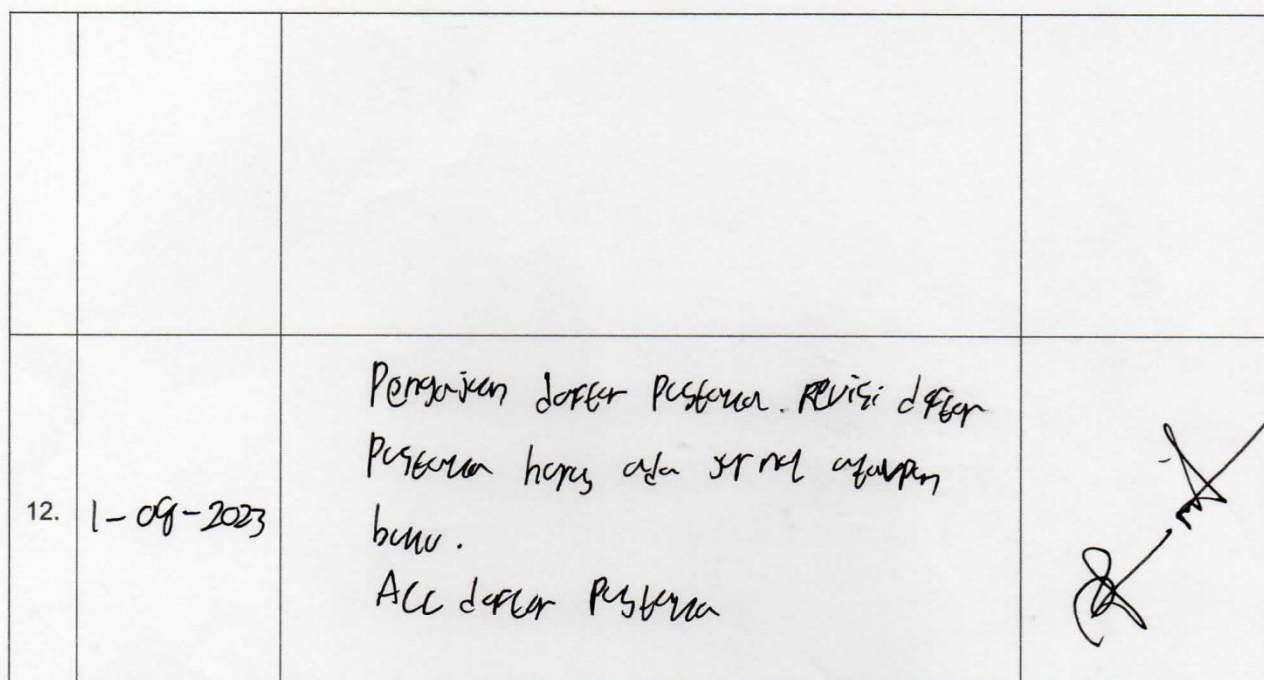 12.
1-09-2023
Pengajuan daftar Pustaka. Revisi daftar
Pustaka harus ada jurnal ataupun
buku.
ACC daftar Pustaka